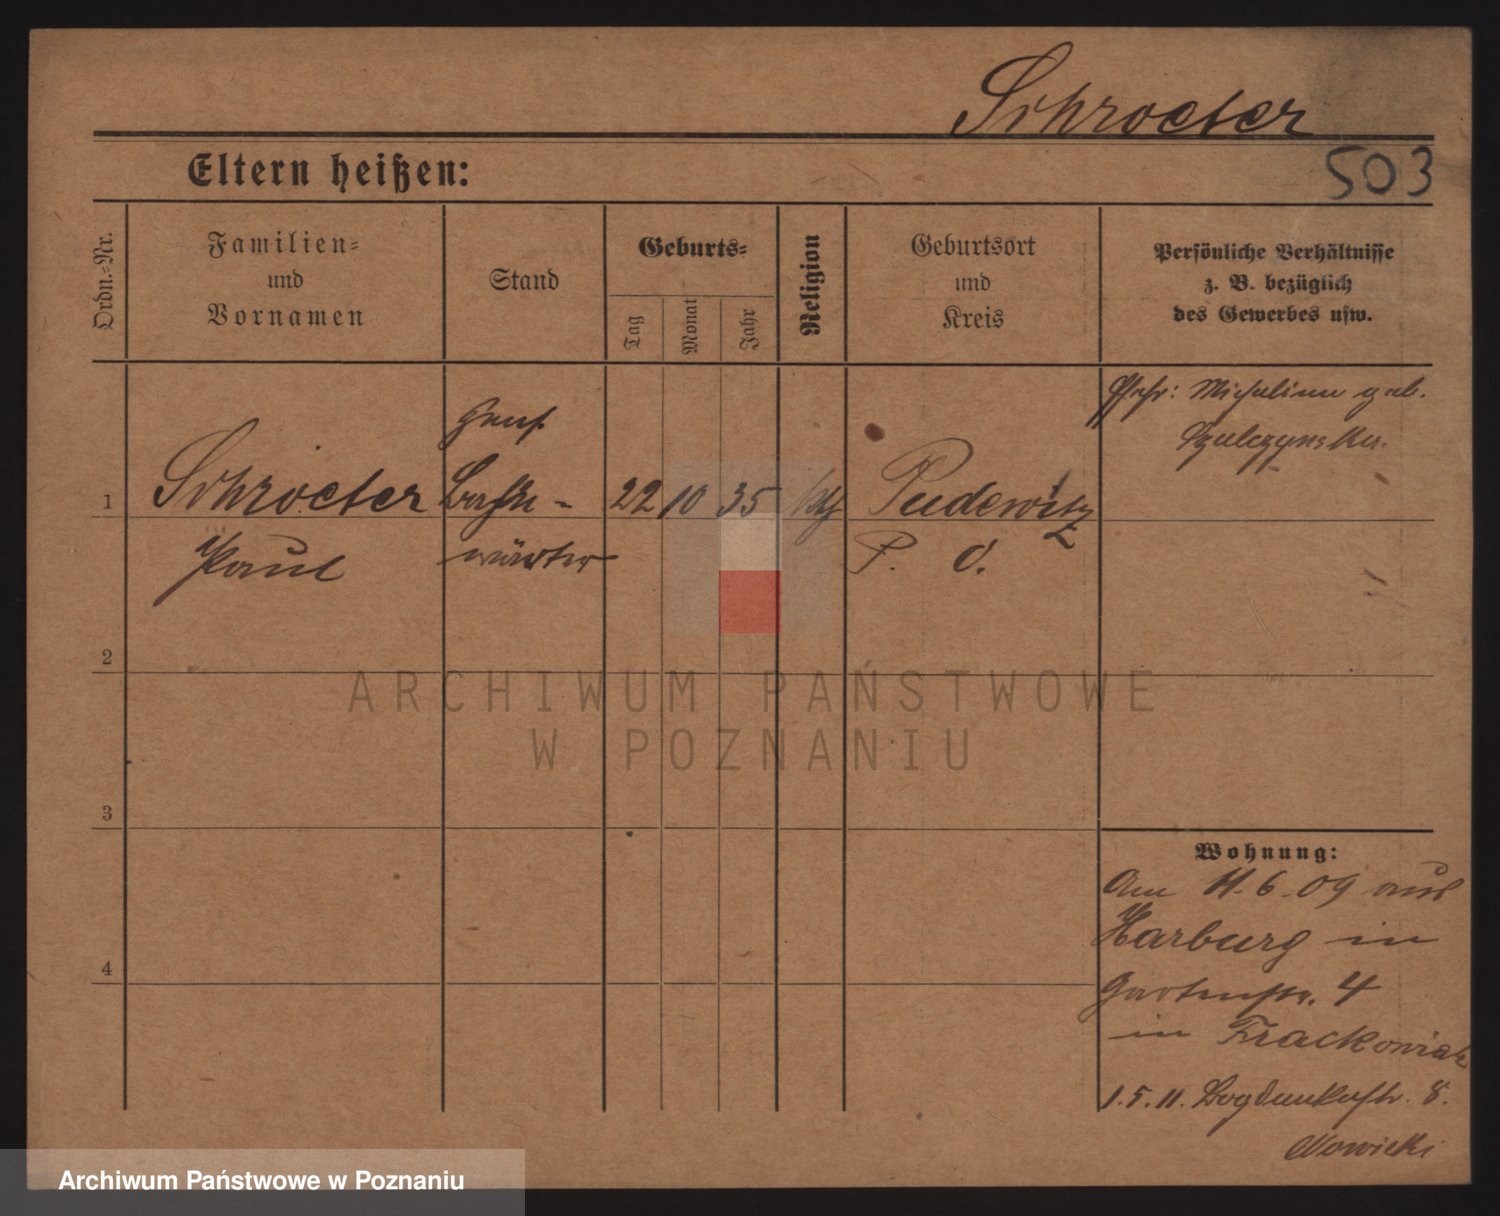 Schroeter
503
Eltern heißen:
Ordn.-Nr.
Familien-
und
Vornamen
Stand
Geburts-
Tag
Monat
Jahr
Religion
Geburtsort
und
Kreis
Persönliche Verhältnisse
z. B. bezüglich
des Gewerbes usw.
1
Schroeter
Paul
wärter
22
10
35
kth
Pudewitz
P. O.
Ehefr: Michalina geb.
Szulczynska.
2
ARCHIWUM PAŃSTWOWE
W POZNANIU
3
4
Wohnung:
Am 11.6.09 aus
Harburg in
Gartenstr. 4
in Frackowiak
1.5.11. Bogdankastr. 8.
Nowicki
Archiwum Państwowe w Poznaniu